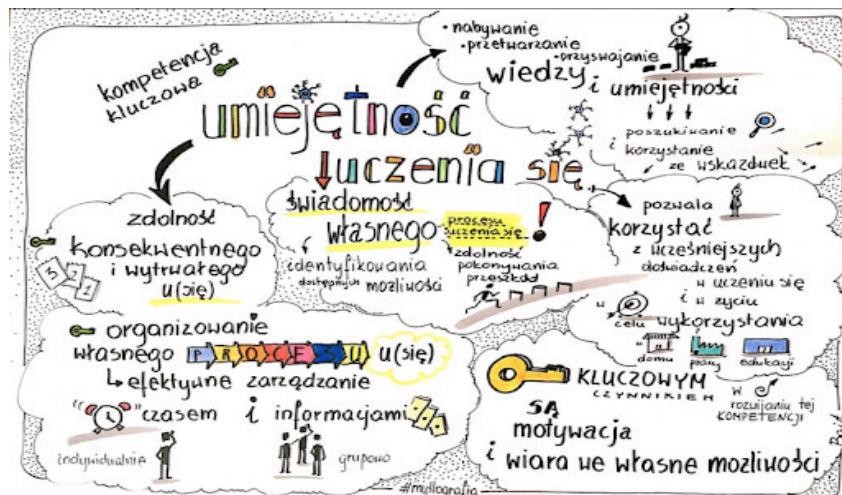 kompetencja
kluczowa
umiejętność
uczenia się
• nabywanie
• przetwarzanie
• przyswajanie
wiedzy
i umiejętności
poszukiwanie
i korzystanie
ze wskazówek
zdolność
konsekwentnego
i wytrwałego
u(się)
3 2 1
świadomość
własnego procesu
uczenia się
!
identyfikowania
dostępnych możliwości
zdolność
pokonywania
przeszkód
pozwala
korzystać
z wcześniejszych
doświadczeń
w uczeniu się
i w życiu
w celu wykorzystania
w domu pracy edukacji
organizowanie
własnego PROCESU u(się)
efektywne zarządzanie
"czasem i informacjami
indywidualnie
grupowo
KLUCZOWYM
CZYNNIKIEM
w rozwijaniu tej
KOMPETENCJI
SĄ
motywacja
i wiara we własne możliwości
#myslografia